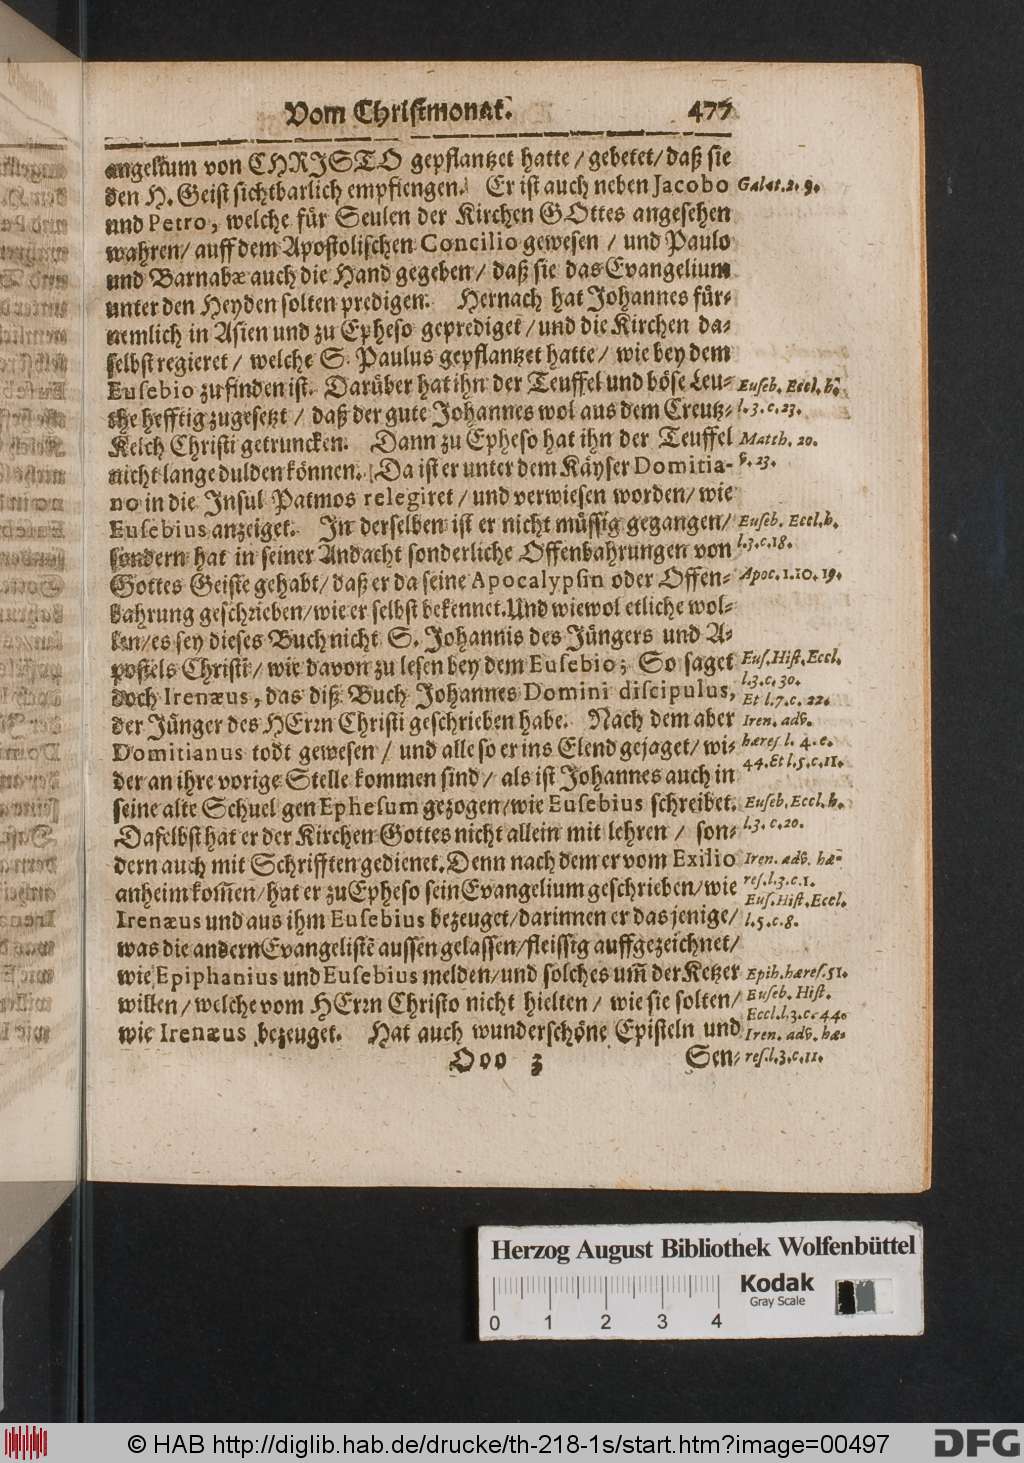 Vom Christmonat. 477
angelium von CHRISTO gepflantzet hatte / gebetet / daß sie
den H. Geist sichtbarlich empfiengen. Er ist auch neben Jacobo
Galat. 2. 9.
und Petro, welche für Seulen der Kirchen GOttes angesehen
wahren / auff dem Apostolischen Concilio gewesen / und Paulo
und Barnabæ auch die Hand gegeben / daß sie das Evangelium
unter den Heyden solten predigen. Hernach hat Johannes für-
nemlich in Asien und zu Epheso geprediget / und die Kirchen da-
selbst regieret / welche S. Paulus gepflantzet hatte / wie bey dem
Eusebio zu finden ist. Darüber hat ihn der Teuffel und böse Leu-
Euseb. Eccl. h.
the hefftig zugesetzt / daß der gute Johannes wol aus dem Creutz-
l. 3. c. 23.
Kelch Christi getruncken. Dann zu Epheso hat ihn der Teuffel
Matth. 20.
nicht lange dulden können. Da ist er unter dem Käyser Domitia-
v. 23.
no in die Insul Patmos relegiret / und verwiesen worden / wie
Eusebius anzeiget. In derselben ist er nicht müssig gegangen /
Euseb. Eccl. h.
sondern hat in seiner Andacht sonderliche Offenbahrungen von
l. 3. c. 18.
Gottes Geiste gehabt / daß er da seine Apocalypsin oder Offen-
Apoc. 1. 10. 19.
bahrung geschrieben / wie er selbst bekennet. Und wiewol etliche wol-
len / es sey dieses Buch nicht S. Johannis des Jüngers und A-
postels Christi / wie davon zu lesen bey dem Eusebio; So saget
Eus. Hist. Eccl.
l. 3. c. 30.
doch Irenæus, das diß Buch Johannes Domini discipulus,
Et l. 7. c. 22.
der Jünger des HErrn Christi geschrieben habe. Nach dem aber
Iren. adv.
Domitianus todt gewesen / und alle so er ins Elend gejaget / wi-
hæres l. 4. c.
44. Et l. 5. c. 11.
der an ihre vorige Stelle kommen sind / als ist Johannes auch in
seine alte Schuel gen Ephesum gezogen / wie Eusebius schreibet.
Euseb. Eccl. h.
Daselbst hat er der Kirchen Gottes nicht allein mit lehren / son-
l. 3. c. 20.
dern auch mit Schrifften gedienet. Denn nach dem er vom Exilio
Iren. adv. hæ-
anheim kom̄en / hat er zu Epheso sein Evangelium geschrieben / wie
res. l. 3. c. 1.
Eus. Hist. Eccl.
Irenæus und aus ihm Eusebius bezeuget / darinnen er das jenige /
l. 5. c. 8.
was die andern Evangelistē aussen gelassen / fleissig auffgezeichnet /
wie Epiphanius und Eusebius melden / und solches um̄ der Ketzer
Epih. hæres. 51.
willen / welche vom HErrn Christo nicht hielten / wie sie solten /
Euseb. Hist.
Eccl. l. 3. c. 44.
wie Irenæus bezeuget. Hat auch wunderschöne Episteln und
Iren. adv. hæ-
Ooo 3 Sen-
res. l. 3. c. 11.
Herzog August Bibliothek Wolfenbüttel
Kodak
Gray Scale
0 1 2 3 4
© HAB http://diglib.hab.de/drucke/th-218-1s/start.htm?image=00497
DFG